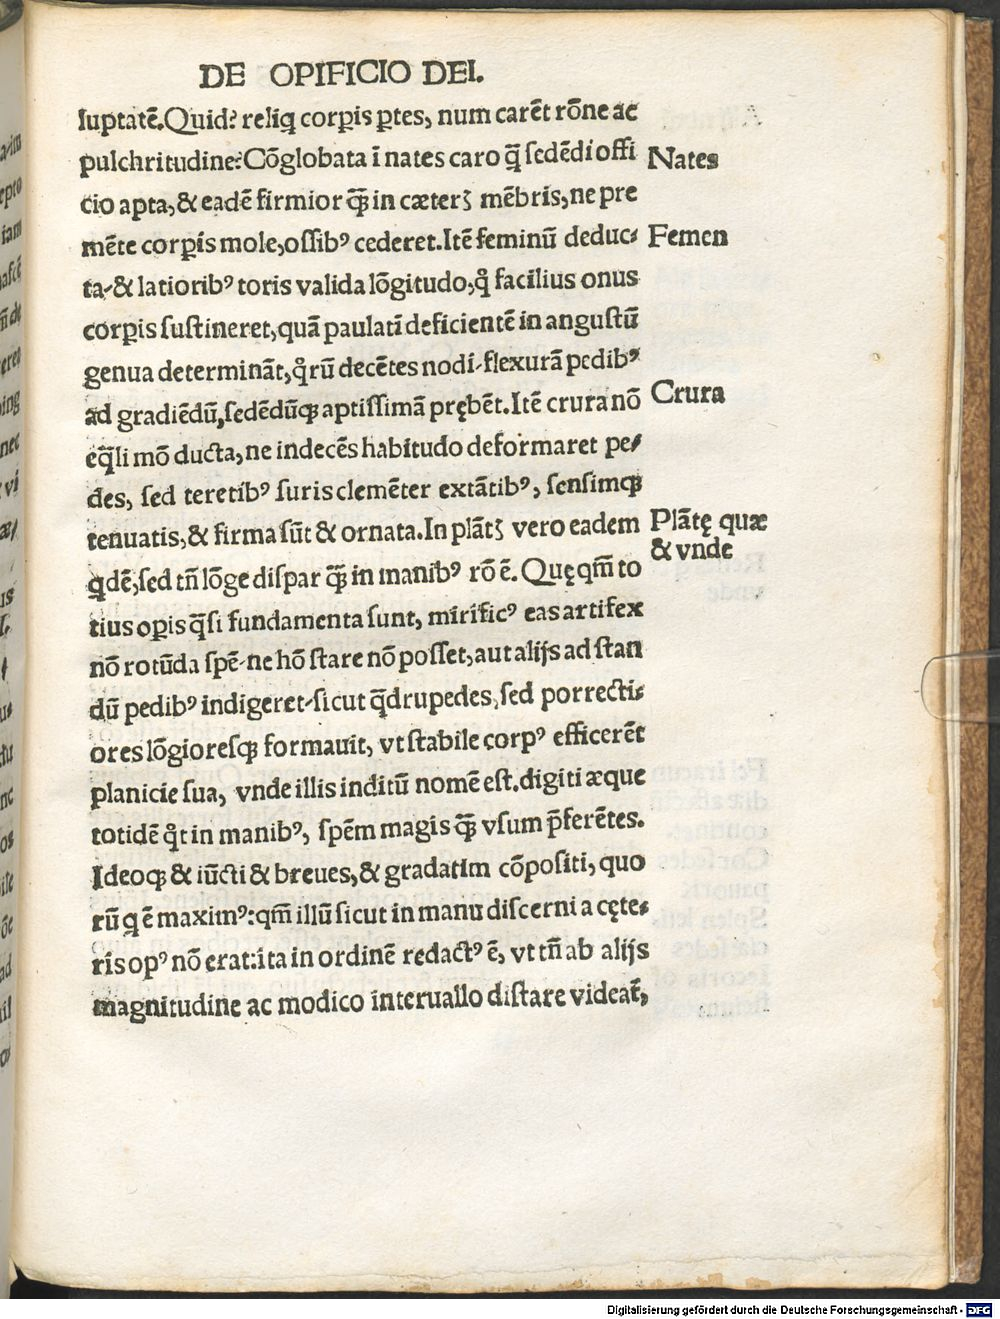 DE OPIFICIO DEI.
luptatē. Quid? reliq̄ corꝑis ꝑtes, num carēt rōne ac
pulchritudine? Cōglobata ī nates caro q̄̃ sedēdi offi
cio apta, & eadē firmior q̄ꝫ in cæterꝫ mēbris, ne pre
mēte corꝑis mole, ossibꝰ cederet. Itē feminū deduc-
ta & latioribꝰ toris valida lōgitudo, q̊ facilius onus
corꝑis sustineret, quā paulatī deficientē in angustū
genua determināt, q̊rū decētes nodi flexurā pedibꝰ
ad gradiēdū, sedēdūqꝫ aptissimā prębēt. Itē crura nō
eq̄̃li mō ducta, ne indecēs habitudo deformaret pe-
des, sed teretibꝰ suris clemēter extātibꝰ, sensimqꝫ
tenuatis, & firma sūt & ornata. In plātꝫ vero eadem
qdē, sed tñ lōge dispar q̄ꝫ in manibꝰ rō ē. Quę qm̄ to
tius oꝑis q̄si fundamenta sunt, mirificꝰ eas artifex
nō rotūda spē ne hō stare nō posset, aut alijs ad stan
dū pedibꝰ indigeret sicut q̄drupedes, sed porrecti-
ores lōgioresqꝫ formauit, vt stabile corpꝰ efficerēt
planicie sua, vnde illis inditū nomē est. digiti æque
totidē q̊t in manibꝰ, spēm magis q̄ꝫ vsum p̄ferētes.
Ideoqꝫ & iūcti & breues, & gradatim cōpositi, quo
rū q ē maximꝰ: qm̄ illū sicut in manu discerni a cęte-
ris opꝰ nō erat: ita in ordinē redactꝰ ē, vt tñ ab alijs
magnitudine ac modico interuallo distare videat̄,
Nates
Femen
Crura
Plātę quæ
& vnde
Digitalisierung gefördert durch die Deutsche Forschungsgemeinschaft - DFG